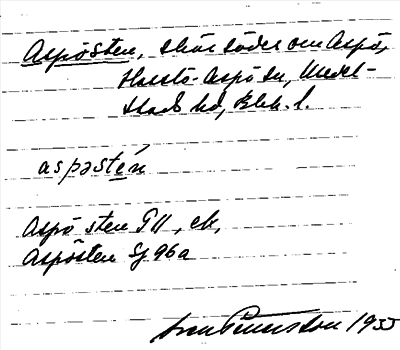 Aspösten, skär söder om Aspö,
Hasslö-Aspö sn, Medel-
stads hd, Blek. l.
aspəstén
Aspö sten GK, ek,
Aspösten Sj 96a
Sven Petersson 1955